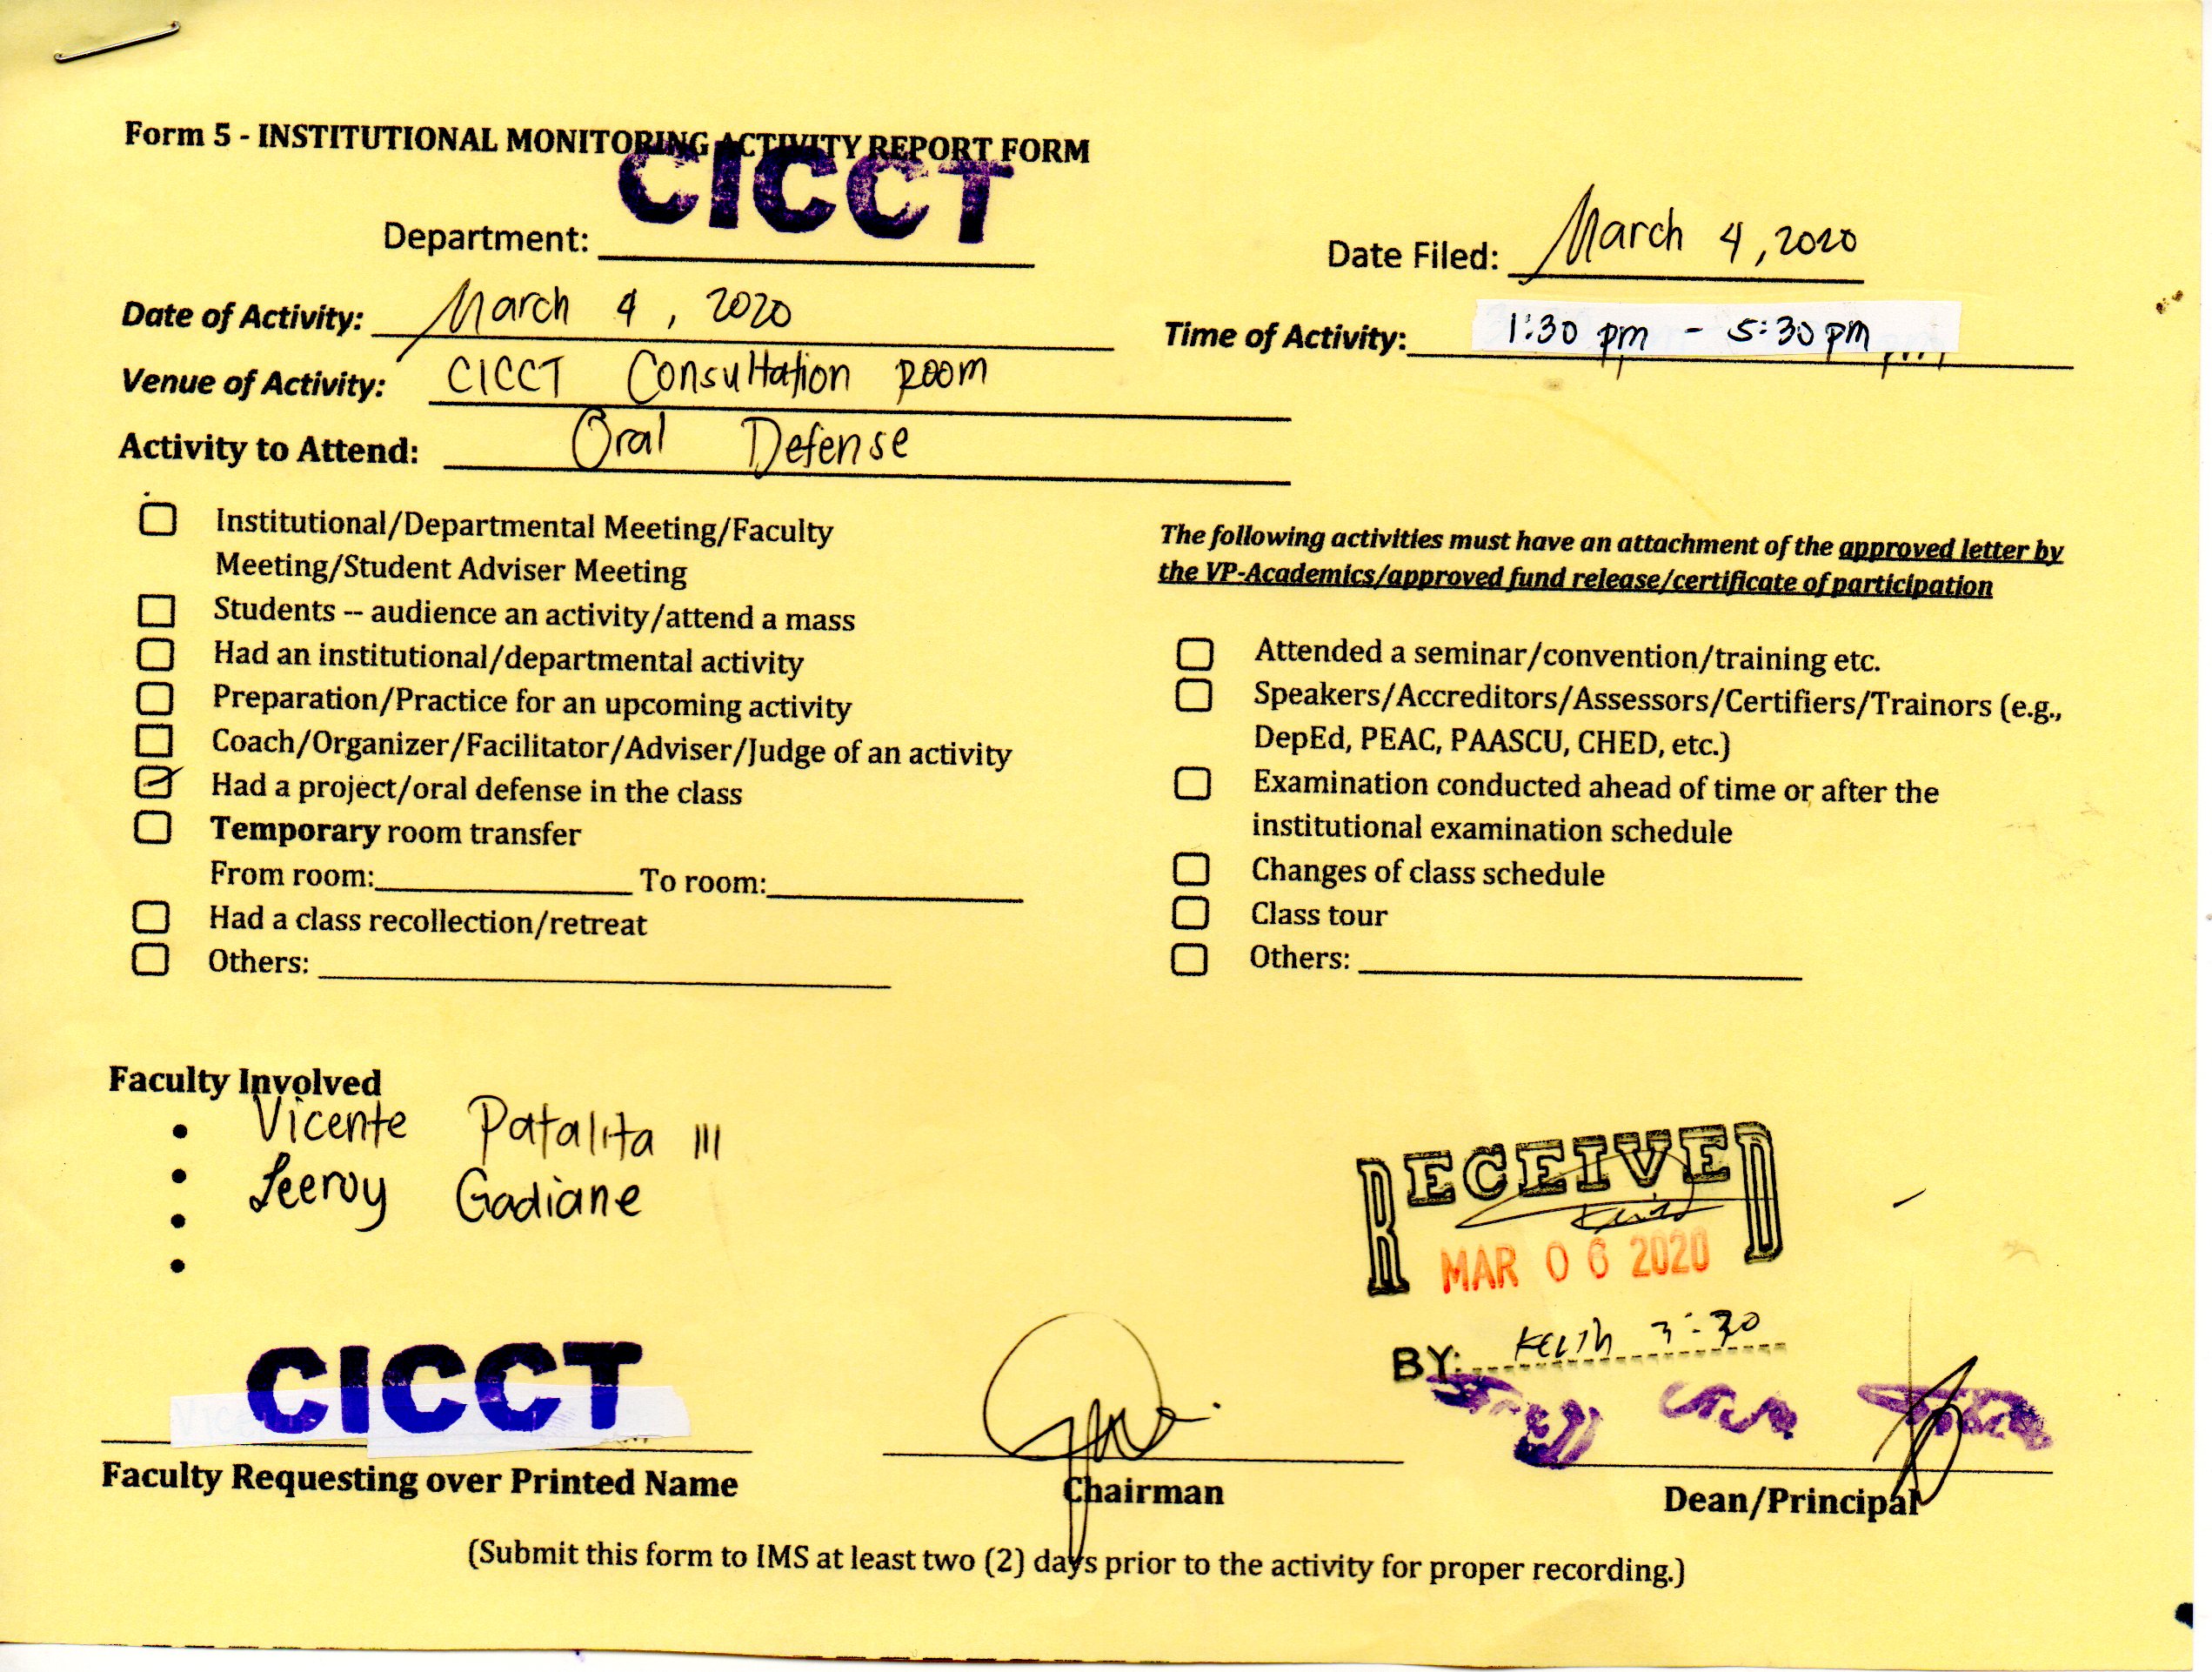 Form 5 - INSTITUTIONAL MONITORING ACTIVITY REPORT FORM
CICCT
Department:
Date Filed: March 4, 2020
Date of Activity: March 4, 2020
Time of Activity: 1:30 pm - 5:30 pm
Venue of Activity: CICCT Consultation Room
Activity to Attend: Oral Defense
Institutional/Departmental Meeting/Faculty
Meeting/Student Adviser Meeting
Students -- audience an activity/attend a mass
Had an institutional/departmental activity
Preparation/Practice for an upcoming activity
Coach/Organizer/Facilitator/Adviser/Judge of an activity
Had a project/oral defense in the class
Temporary room transfer
From room: To room:
Had a class recollection/retreat
Others:
The following activities must have an attachment of the approved letter by
the VP-Academics/approved fund release/certificate of participation
Attended a seminar/convention/training etc.
Speakers/Accreditors/Assessors/Certifiers/Trainors (e.g.,
DepEd, PEAC, PAASCU, CHED, etc.)
Examination conducted ahead of time or after the
institutional examination schedule
Changes of class schedule
Class tour
Others:
Faculty Involved
Vicente Patalita III
Leeroy Gadiane
RECEIVED
MAR 06 2020
BY: Keith 3:30
CICCT
Faculty Requesting over Printed Name
Chairman
Dean/Principal
(Submit this form to IMS at least two (2) days prior to the activity for proper recording.)